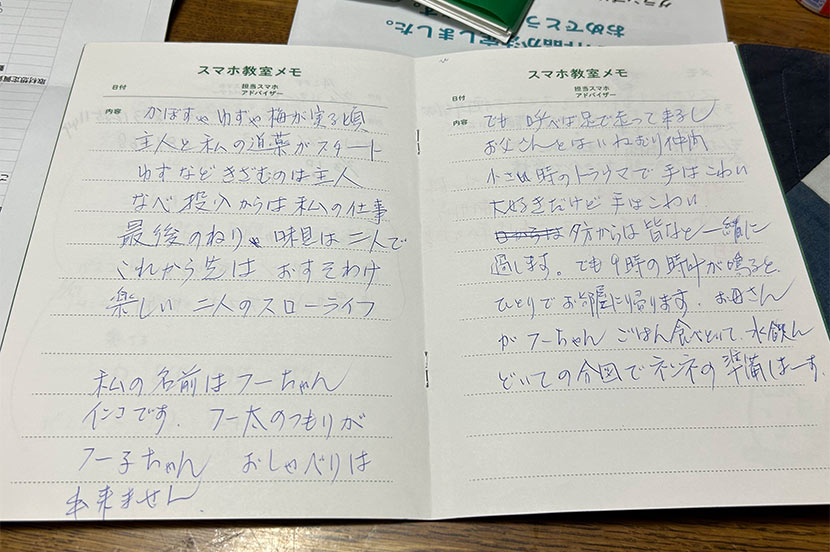 グラン
決定しました。
おめでとう
スマホ教室メモ
日付
担当スマホ
アドバイザー
内容
かぼすやゆずや梅が実る頃
主人と私の道楽がスタート
ゆずなどきざむのは主人
なべ投入からは私の仕事
最後のねりや味見は二人で
これから先は おすそわけ
楽しい二人のスローライフ
私の名前はフーちゃん
インコです. フー太のつもりが
フー子ちゃん おしゃべりは
出来ません.
スマホ教室メモ
日付
担当スマホ
アドバイザー
内容
でも 呼べば足で走って来るし
お父さんとはいねむり仲間
小さい時のトラウマで手はこわい
大好きだけど 手はこわい
夕方からは皆なと一緒に
過します。でも9時の時計が鳴ると、
ひとりでお部屋に帰ります. お母さん
が フーちゃん ごはん食べといて、水飲ん
どいての合図でネンネの準備はーす.